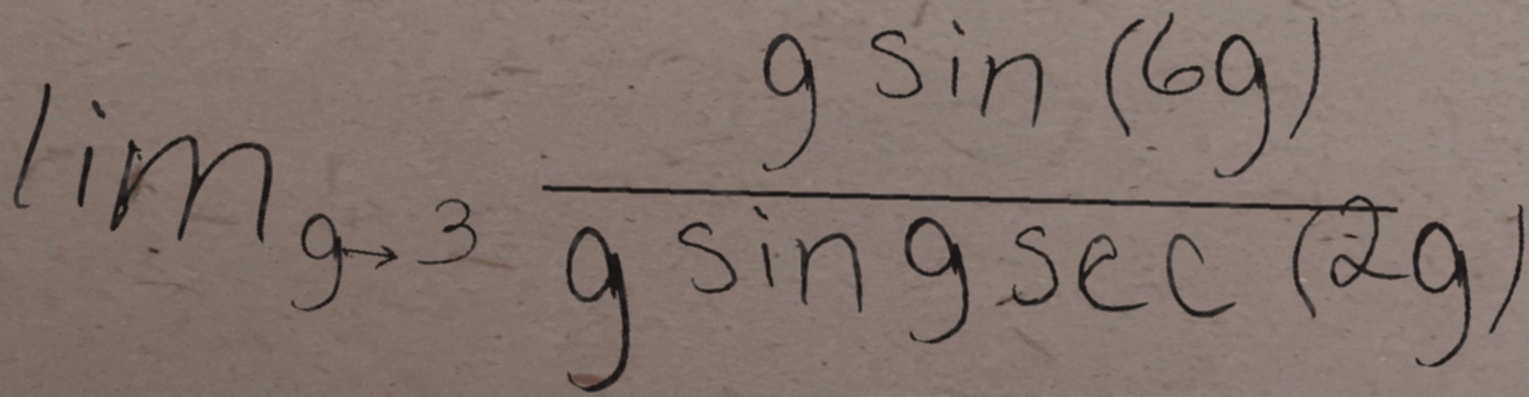 lim g→3 g sin (6g) / g sin g sec (2g)